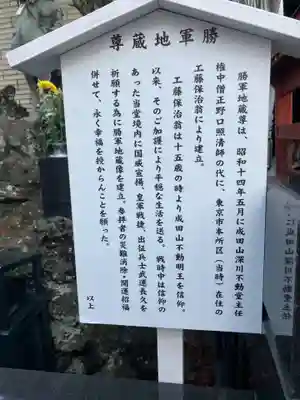 勝軍地蔵尊
勝軍地蔵尊は、昭和十四年五月に成田山深川不動堂主任
権中僧正野口照清師の代に、東京市本所区（当時）在住の
工藤保治翁により建立。
工藤保治翁は十五歳の時より成田山不動明王を信仰。
以来、そのご加護により平穏な生活を送る。戦時中は信仰の
あった当堂境内に国威宣揚、皇軍戦捷、出征兵士武運長久を
祈願する為に勝軍地蔵像を建立。参拝者の災難消除・開運招福
併せて、永く幸福を授からんことを願った。
以上